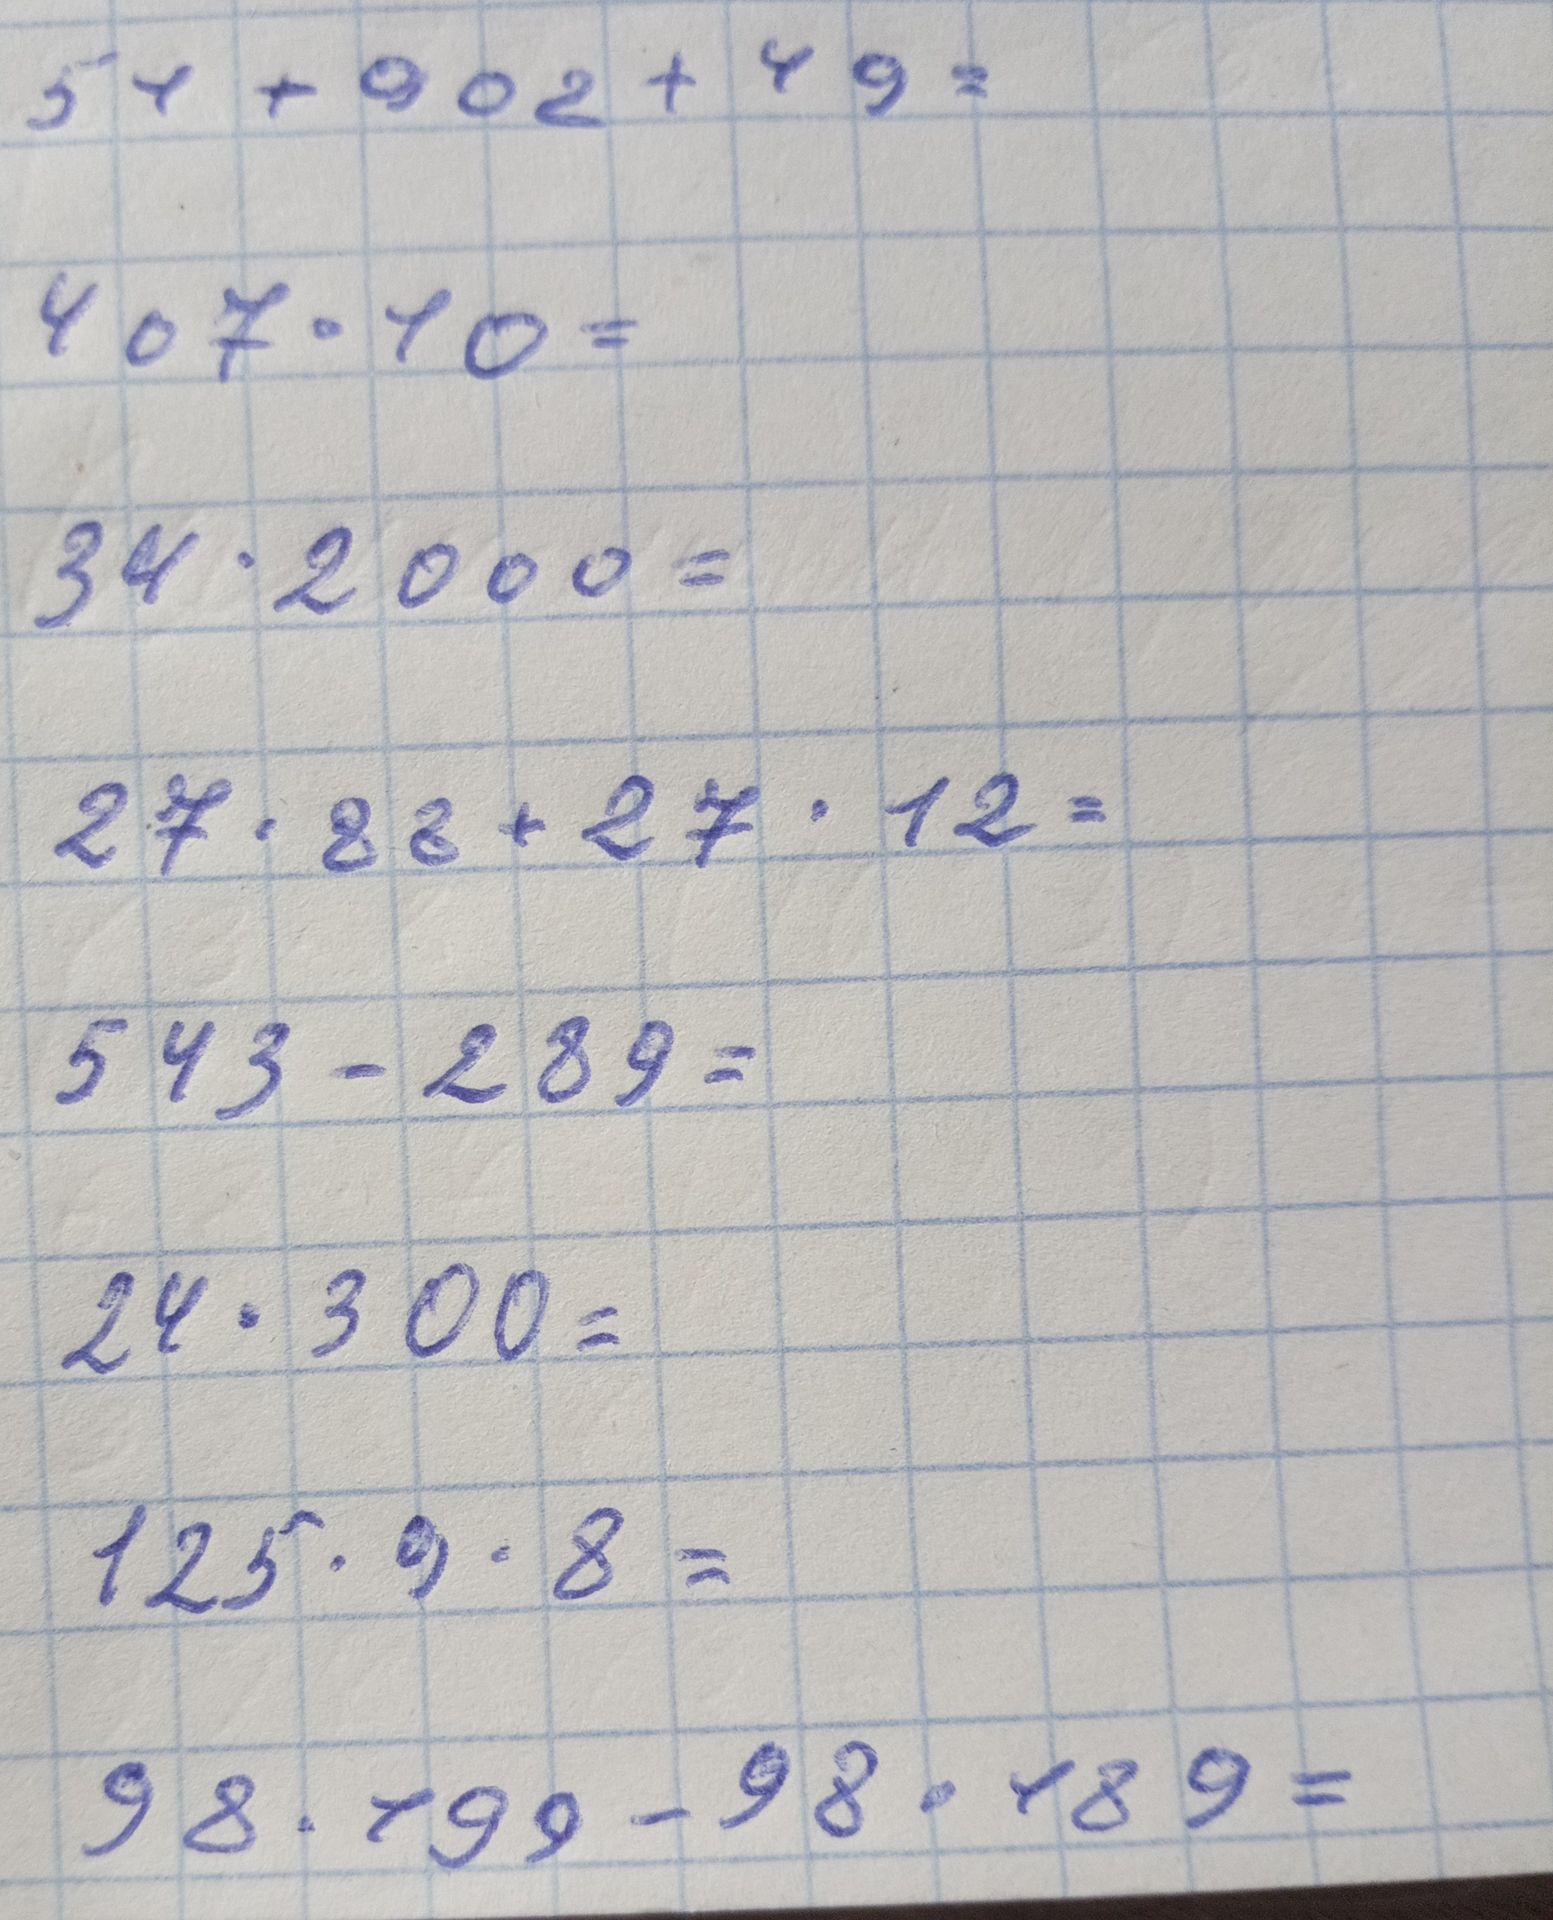 51 + 902 + 49 =
407 · 10 =
34 · 2000 =
27 · 88 + 27 · 12 =
543 - 289 =
24 · 300 =
125 · 9 · 8 =
98 · 199 - 98 · 189 =